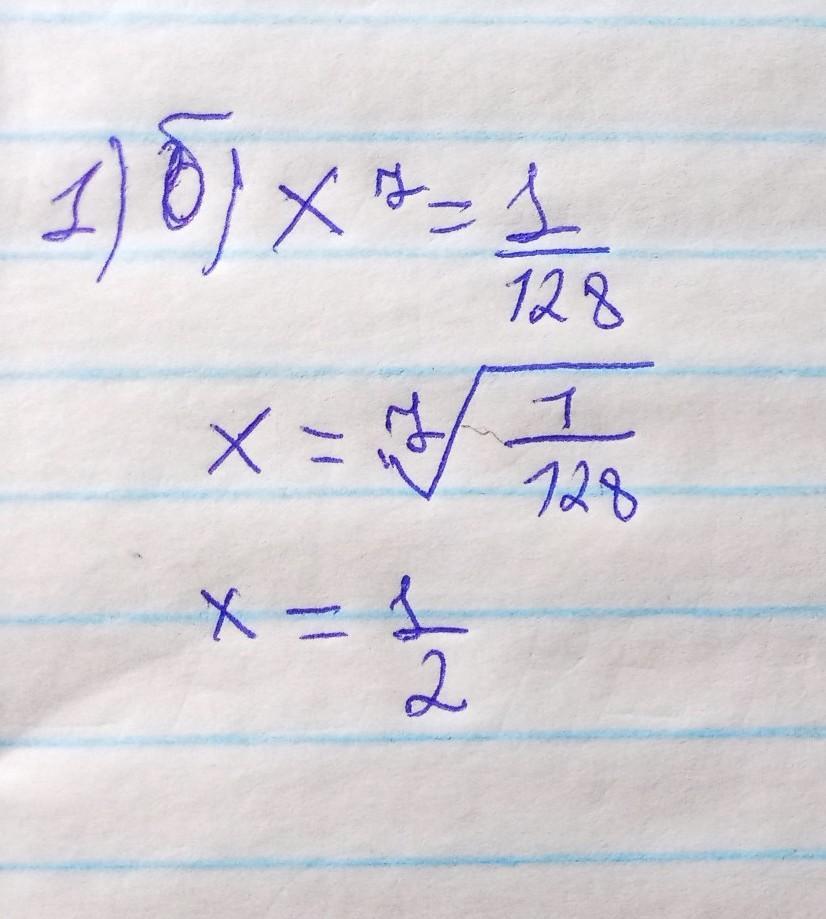 1) б) x⁷ = 1/128
x = ⁷√(1/128)
x = 1/2